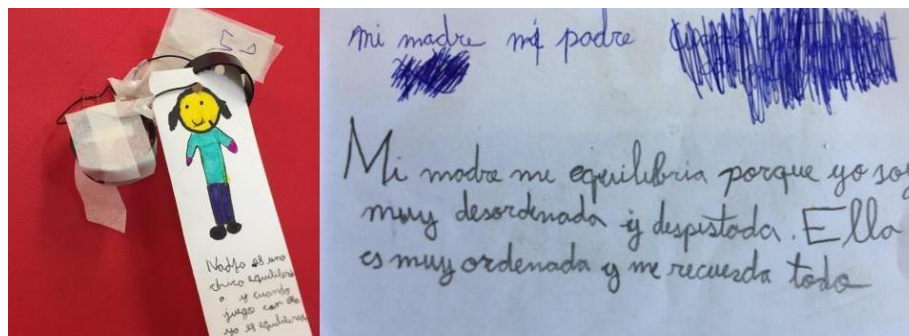 Nadja es una
chica equilibra
a y cuando
juego con ella
yo es equilibrada
mi madre mi padre
Mi madre me equilibria porque yo soy
muy desordenada y despistada. Ella
es muy ordenada y me recuerda todo